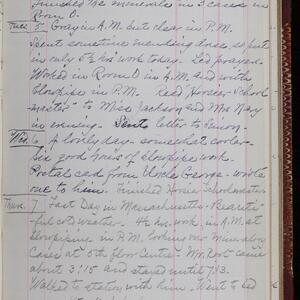 finished the minerals in 3 cases in
Room O.
Tues. 5 Gray in A.M. but clear in P.M.
Spent sometime mending dress so put
in only 5½ hrs. work today. Led prayers.
Worked in Room O in A.M. and with
blowpipe in P.M. Read Hoosier School-
master to Miss Jackson and Mrs. Mary
in evening. Sent letter to Simon.
Wed. 6 A lovely day - somewhat cooler.
Six good hours of blowpipe work.
Postal card from Uncle George - wrote
one to him. Finished Hoosier Schoolmaster
Thurs. 7 Fast Day in Massachusetts. Beauti-
ful cool weather. 4½ hrs. work in A.M. at
blowpiping in P.M. looking over minerals
Cases at 5th floor Centre. Mr. came
about 3:15 and stayed until 7:13.
Walked to station with him. Went to bed